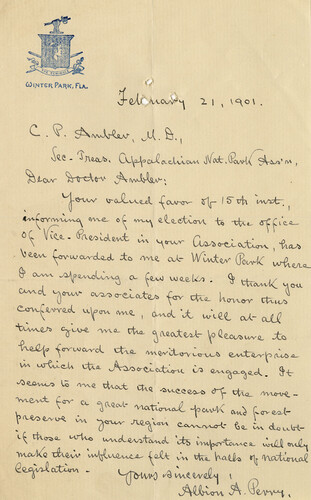 WINTER PARK, FLA.
February 21, 1901.
C. P. Ambler, M. D.,
Sec. Treas. Appalachian Nat. Park Ass'n,
Dear Doctor Ambler:
Your valued favor of 15th inst.,
informing me of my election to the office
of Vice-President in your Association, has
been forwarded to me at Winter Park where
I am spending a few weeks. I thank you
and your associates for the honor thus
conferred upon me, and it will at all
times give me the greatest pleasure to
help forward the meritorious enterprise
in which the Association is engaged. It
seems to me that the success of the move-
ment for a great national park and forest
preserve in your region cannot be in doubt
if those who understand its importance will only
make their influence felt in the halls of national
legislation.
Yours sincerely,
Albion A. Perry.